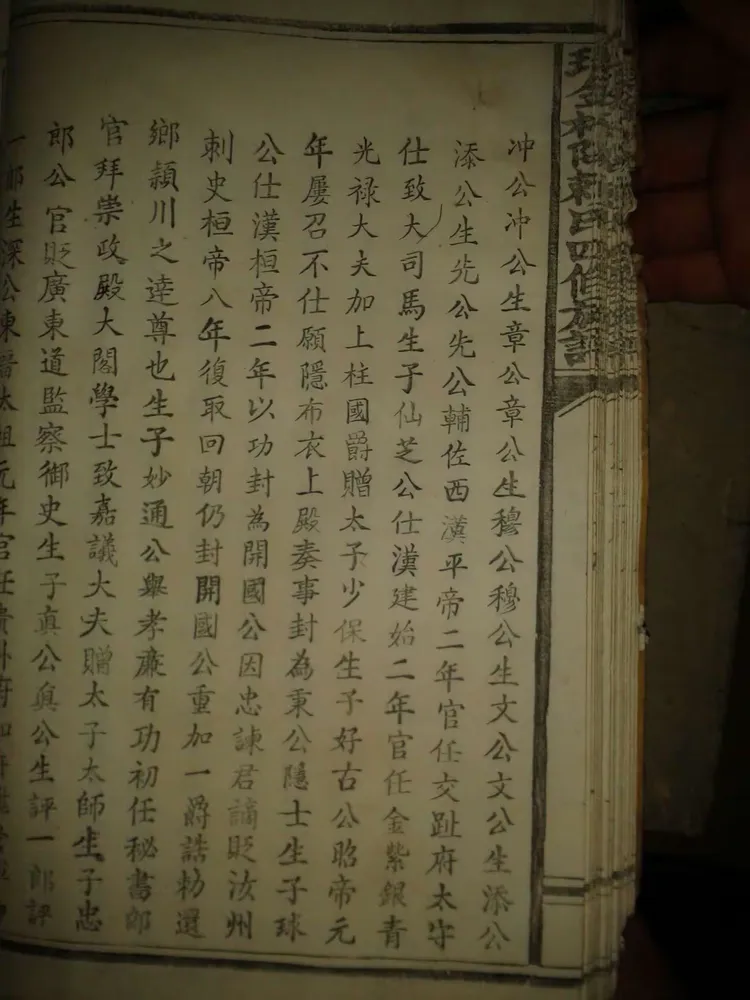 賴氏四修族譜
冲公冲公生章公章公生穆公穆公生文公文公生添公
添公生先公先公輔佐西漢平帝二年官任交趾府太守
仕致大司馬生子仙芝公仕漢建始二年官任金紫銀青
光禄大夫加上柱國爵贈太子少保生子好古公昭帝元
年屢召不仕願隱布衣上殿奏事封為秉公隱士生子球
公仕漢桓帝二年以功封為開國公因忠諫君謫貶汝州
刺史桓帝八年復取回朝仍封開國公重加一爵誥勅還
鄉頴川之逵尊也生子妙通公舉孝廉有功初任秘書郎
官拜崇政殿大閣學士致嘉議大夫贈太子太師生子忠
郎公官貶廣東道監察御史生子真公眞公生評一郎評
一郎生深公東晉太祖元年官任貴